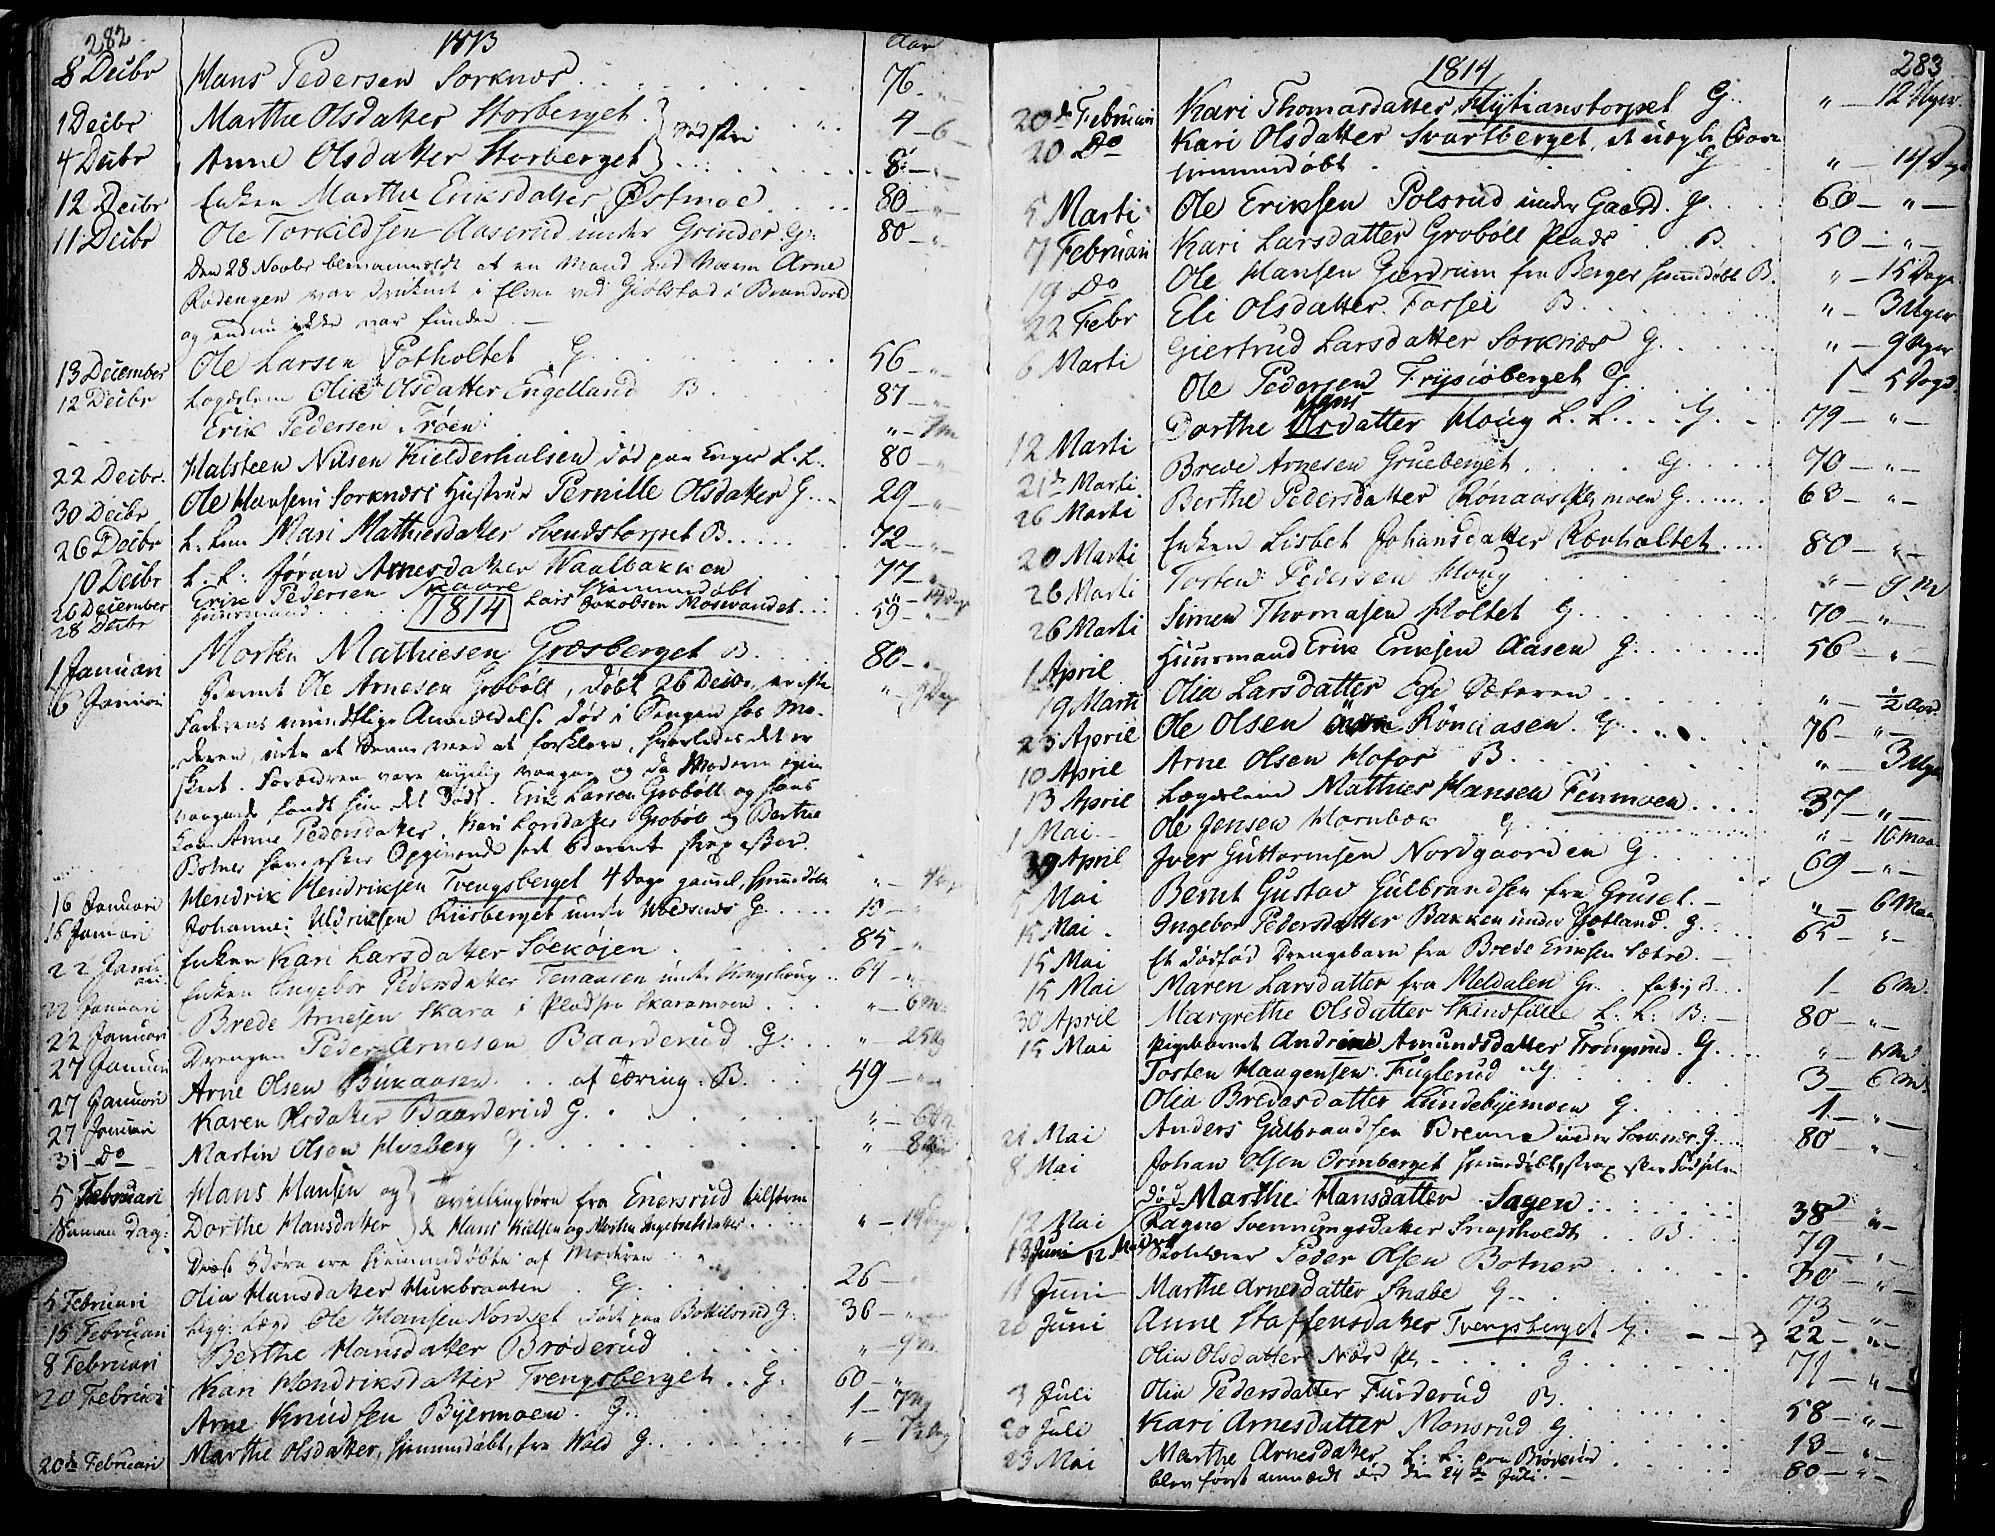 282
1813
Aar
8 Decbr Hans Pedersen Sorknæs 76 - " -
1 Decbr Marthe Olsdatter Storberget 4 - 6 -
4 Decbr Anne Olsdatter Storberget } Södstre 8 - " -
12 Decbr Enken Marthe Eriksdatter Østmoe 80 - " -
11 Decbr Ole Torkildsen Aaserud under Grinder G. 80 - " -
Den 28 Novbr at en Mand ved Navn Arne
Rodengen var druknet i Elven ved Gjölstad i Brandval
og endnu ikke var funden. -
13 December Ole Larsen Potholtet G. 56 - " -
12 Decbr Olia Olsdatter Engelland B. 87 - " -
Erik Pedersen Trøen " - 7 m
22 Decbr. Halsteen Nilsen Kielderhalsen död paa Enger L. L. 80 - " -
30 Decbr Ole Hansens Sorknæs Hustrue Pernille Olsdatter G. 29 - " -
26 Decbr L. Lem Mari Mathiesdatter Svendstorpet B. 72 - " -
10 Decbr L. L. Jöran Arnesdatter Waalbakken 77 - " -
26 December Erik Pedersen Skaare hiemmedöbt " - 14 Dage
28 Decbr Huusmand Lars Jakobsen Mosevandet 59 - " -
1814
1 Januari Morten Mathiesen Græsberget B. 80 - " -
6 Januari Barnet Ole Arnesen Grobøll, döbt 26 Decbr, er efter " - Dage
Faderens mundtlige Anmeldelse död i Sengen hos Mo-
deren, uden at denne veed at forklare, hvorledes det er
skeet. Forældrene vare nylig vaagne og da Moderen igien
vaagnede fandt hun det dödt. Erik Larsen Grobøll og hans
Kone Anne Pedersdatter, Kari Larsdatter Grobøll og Berthe
Botner Opgivende seet Barnet strax efter.
16 Januari Hendrik Hendriksen Tvengsberget 4 Dage gammel, hiemmedöbt " - 4 Dage
16 Januari Johannes Uldriksen Riisberget under G. 10 - "
22 Januari Enken Kari Larsdatter Söekojen 85 - "
22 Januari Enken Ingebor Pedersdatter Tenaasen under Kongshoug 64 - "
22 Januari Brede Arnesen Skara i Pladsen Skaramoen " - 6 m.
27 Januari Drengen Peder Arnesen Baarderud G. " - 25 Ug
27 Januari Arne Olsen Bukaasen af Tæring. B. 49 - "
27 Januari Karen Olsdatter Baarderud G. " - 6 Ug
31 Do Martin Olsen Hveberg G. " - 8 Uger
5 Februari Hans Hansen og
Samme Dag: Dorthe Hansdatter } Tvillingbörn fra Enersrud tilhörende
Hans Nielsen og Marthe Ingebretsdatter " - 14 Dage
Disse Börn ere hiemmedöbte af Moderen
5 Februari Olia Hansdatter Huskbraaten G. 26 -
15 Februari Ole Hansen Nordset död paa Bokilsrud G: 36 - "
8 Februari Berthe Hansdatter Bröderud " - 9 m
20 Februari Kari Hendriksdatter Tvengsberget G. 60 - "
Arne Knudsen Byermoen G. 1 - 7 m
20de Februari Marthe Olsdatter, hiemmedöbt, fra Wold G. " - Dag
283
1814
20de Februari Kari Thomasdatter Flytianstorpet G. " - 12 Uger.
20 Do Kari Olsdatter Svartberget, et uægte Barn
hiemmedöbt G " - 14 Dage
5 Marti Ole Eriksen Polsrud under Gaard. G. 60 - " -
7 Februari Kari Larsdatter Grobøll Plads B. 50 - " -
19 Do Ole Hansen Gierdrum fra Berger hiemmedöbt B. " - 15 Dage
22 Febr Eli Olsdatter Forsei B " - 3 Uger
6 Marti Giertrud Larsdatter Sorknæs G. " - 9 Uger
Ole Pedersen Frysiøberget G. 1 - 5 Dage
12 Marti Dorthe Hansdatter Houg L. L. G. 79 - " -
21de Marti Brede Arnesen Grueberget G. 70 - " -
26 Marti Berthe Pedersdatter Rönaas Hermoen G. 63 - " -
20 Marti Enken Lisbet Johansdatter Rævholtet 80 - " -
26 Marti Torsten Pedersen Houg " - 9 m
26 Marti Simen Thomasen Holtet G. 70 - " -
1 April Huusmand Erik Eriksen Aasen G. 56 - " -
19 Marti Olia Larsdatter Ege Sætoren " - 1/2 Aar.
25 April Ole Olsen Rönaasen. G. 76 - " -
10 April Arne Olsen Hofos B. " - 3 Uger
13 April Lægdslem Mathies Hansen Fenmoen 37 - " -
1 Mai Ole Jensen Hornbæk G. " - 10 Maan
29 April Iver Guttormsen Nordgaarden G. 69 - " -
Mai Bernt Gustav Gulbrandsen fra Gruset. " - 6 Maan
15 Mai Ingebor Pedersdatter Bakken under Gotland. G. 65 - " -
15 Mai Et dödföd Drengebarn fra Brede Eriksen Sætre. -
15 Mai Maren Larsdatter fra Meldalen G. 1 - 6 m.
30 April Margrethe Olsdatter Skindfille L: L: B: 80 - " -
15 Mai Pigebarnet Andrine Amundsdatter Trongsrud. G. " - m.
Torsten Haagensen Fuglerud G. 3 - 6 m.
Olia Bredesdatter Lundebyemoen G. 1 - " -
21 Mai Anders Gulbrandsen Brenna under Sorknæs. G. 80 "
8 Mai Johan Olsen Ormberget hiemmedöbt, strax efter Födselen
död
12 Mai Marthe Hansdatter Sagen 38 "
13 Juni Ragne Svenningsdatter Snapholdt B. 79 - "
12 Skolelærer Peder Olsen Botner 60 - "
11 Juni Marthe Arnesdatter Snabe G. 73 - "
20 Juni Anne Staffensdatter Tvengsberget G. 22 - "
Olia Olsdatter Næs G. 71 - " -
3 Juli Olia Pedersdatter Furderud B.
20 Juli Kari Arnesdatter Monsrud G. 58 - " -
23 Mai Marthe Arnesdatter L: L: paa Bröderud 13 - " -
blev först anmeldt död den 24de Juli. - 80 - " -